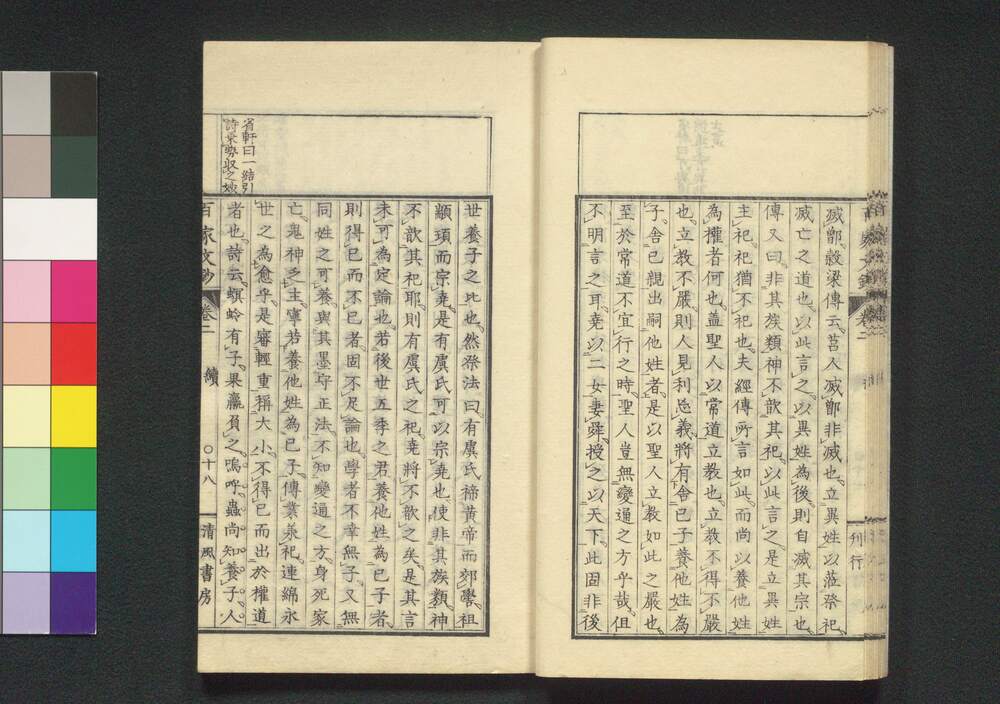 滅鄫穀梁傳云莒人滅鄫非滅也立異姓以莅祭祀
滅亡之道也以此言之以異姓為後則自滅其宗也
傳又曰非其族類神不歆其祀以此言之是立異姓
主祀祀猶不祀也夫經傳所言如此而尚以養他姓
為權者何也蓋聖人以常道立教也立教不得不嚴
也立教不嚴則人見利忘義將有舍己子養他姓為
子舍己親出嗣他姓者是以聖人立教如此之嚴也
至於常道不宜行之時聖人豈無變通之方乎哉但
不明言之耳堯以二女妻舜授之以天下此固非後
刊行
世養子之比也然祭法曰有虞氏禘黃帝而郊嚳祖
顓頊而宗堯是有虞氏可以宗堯也使非其族類神
不歆其祀耶則有虞氏之祀堯將不歆之矣是其言
未可為定論也若後世五季之君養他姓為己子者
則得已而不已者固不足論也學者不幸無子又無
同姓之可養與其墨守正法不知變通之方身死家
亡鬼神乏主寧若養他姓為己子傳業承祀連綿永
世之為愈乎是審輕重稱大小不得已而出於權道
者也詩云螟蛉有子果蠃負之嗚呼蟲尚知養子人
省軒曰一結引
百家文鈔 卷二 續 〇十八 清風書房